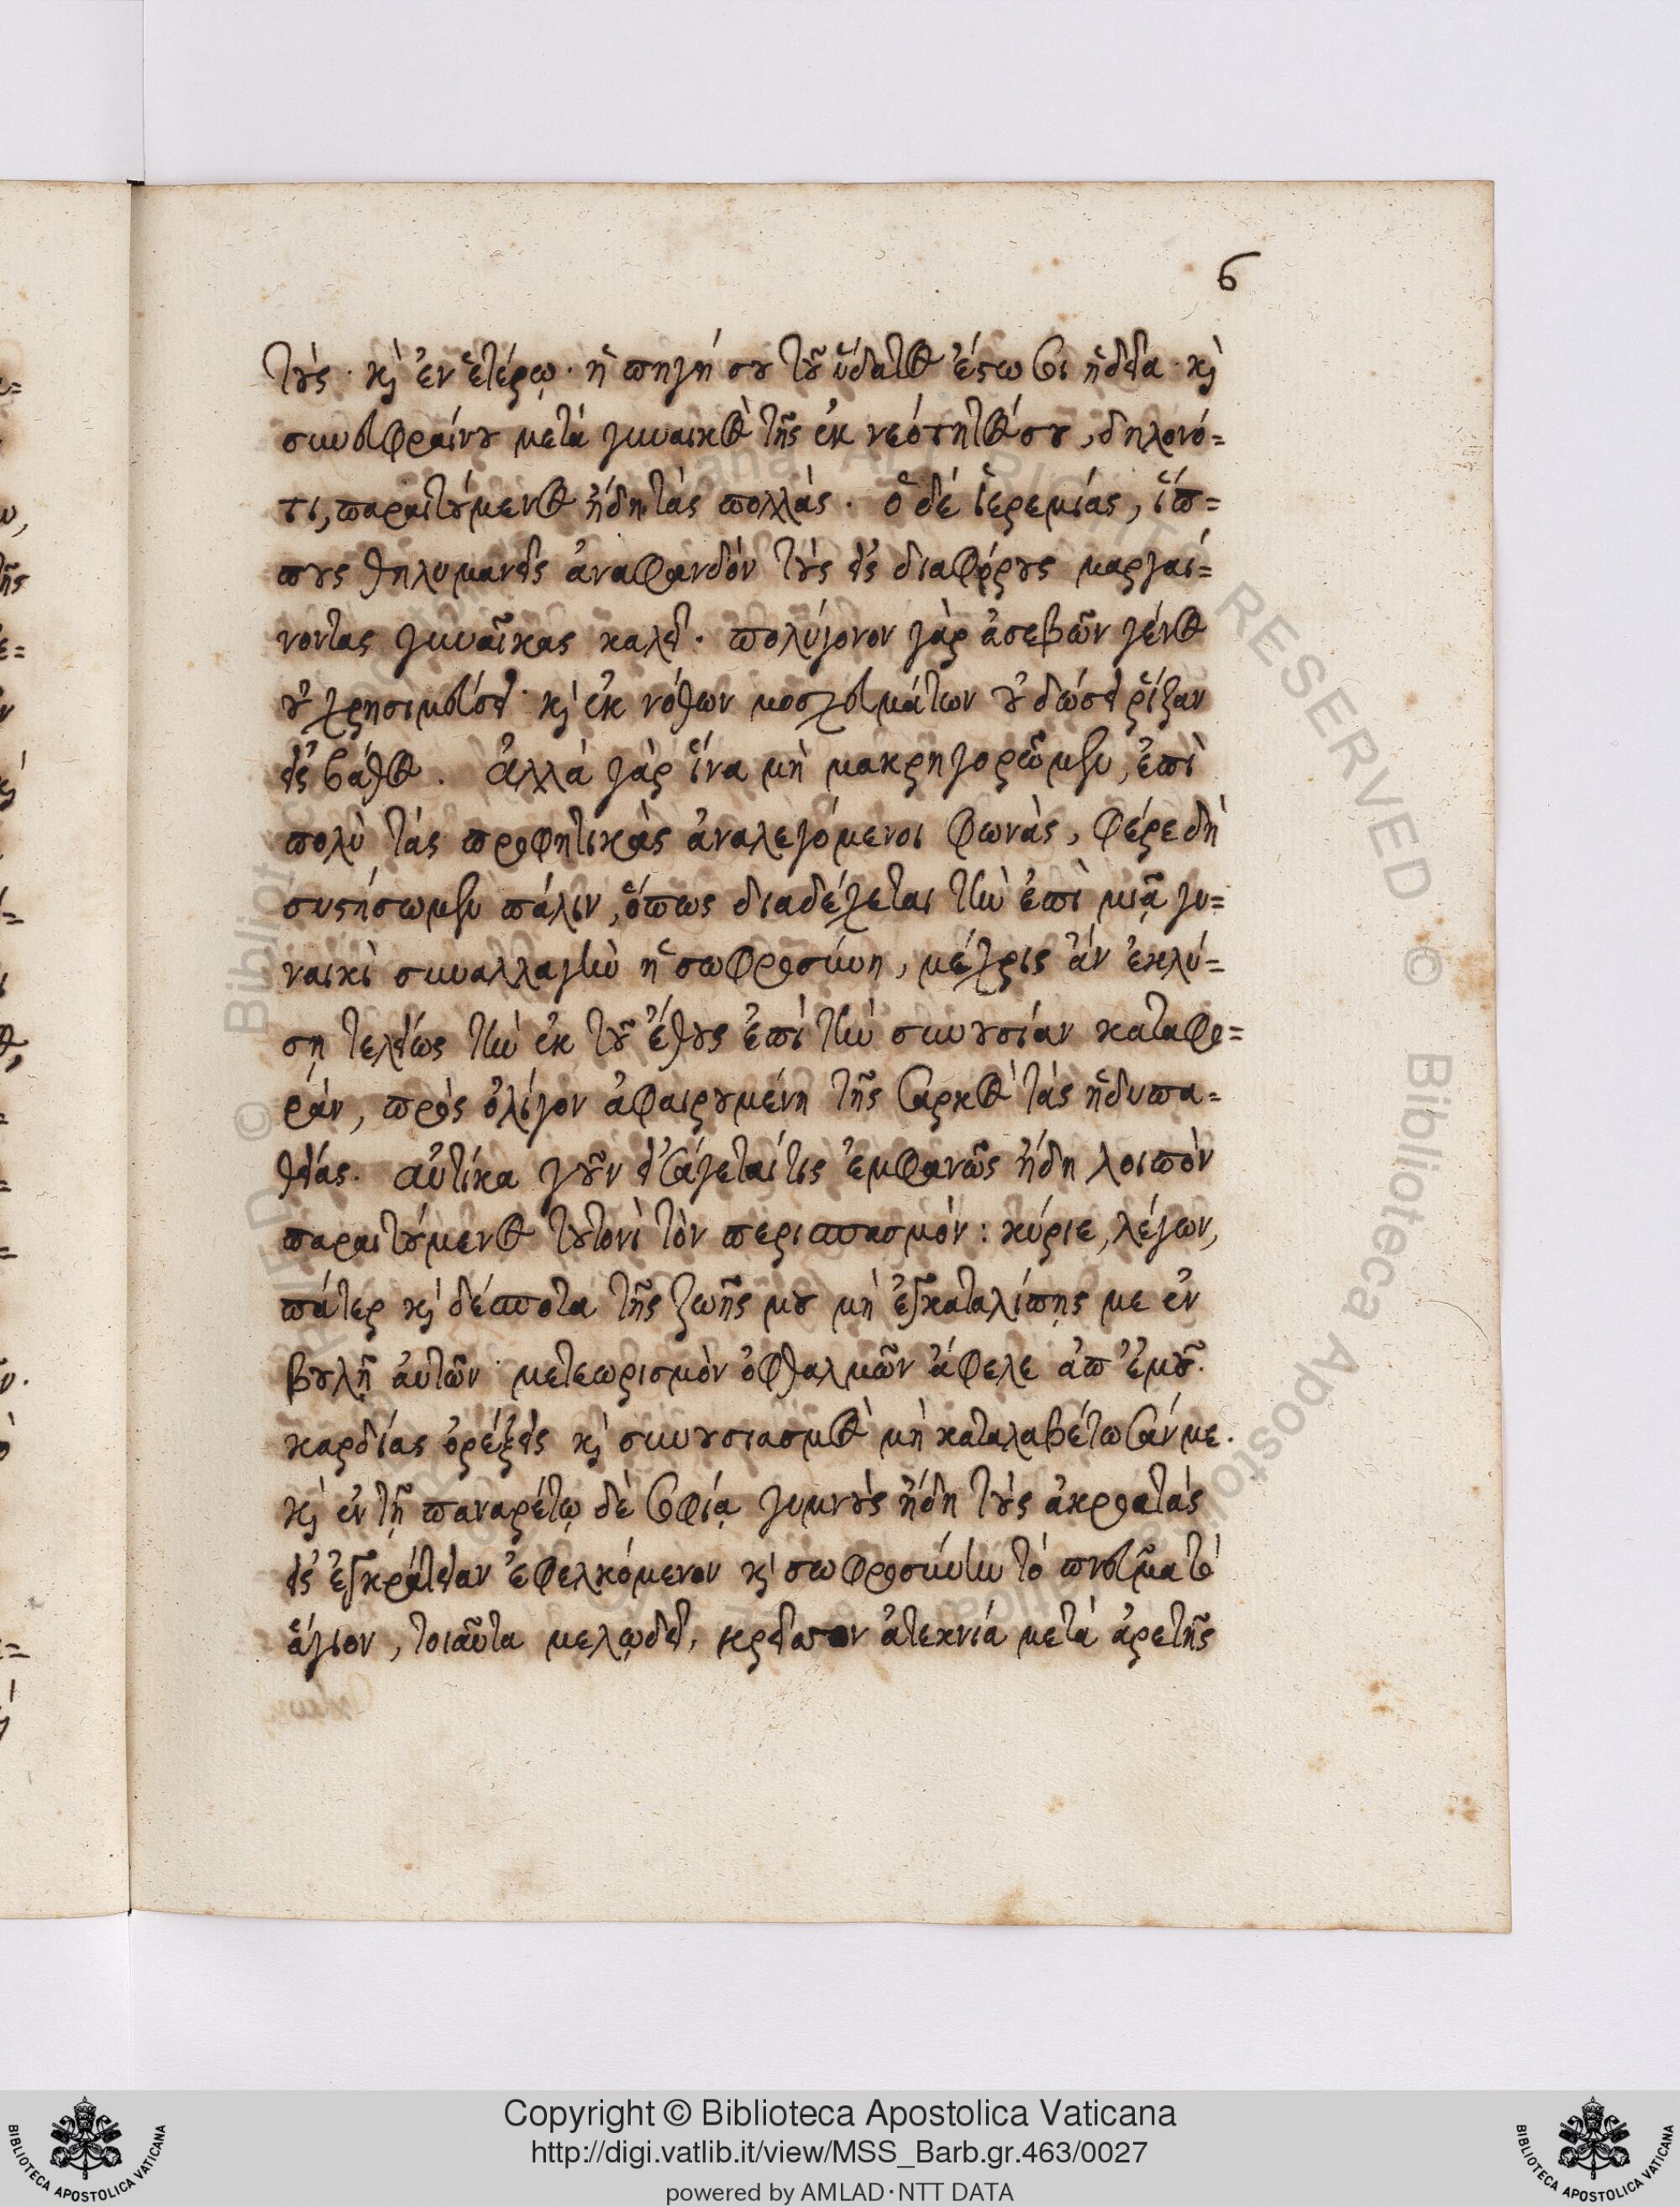 6
τοὺς· καὶ ἐν ἑτέρῳ· ἡ πηγή σου τοῦ ὕδατος ἔστω σοι ἡδεῖα· καὶ
συνευφραίνου μετὰ γυναικὸς τῆς ἐκ νεότητός σου, δηλονό=
τι, παραιτούμενος ἤδη τὰς πολλάς. ὁ δὲ ἱερεμίας, ἵπ=
πους θηλυμανεῖς ἀναφανδόν τοὺς εἰς διαφόρους μαργαί=
νοντας γυναῖκας καλεῖ. πολύγονον γὰρ ἀσεβῶν γένος
οὐ χρησιμεύσει· καὶ ἐκ νόθων μοσχευμάτων οὐ δώσει ῥίζαν
εἰς βάθος. ἀλλὰ γὰρ ἵνα μὴ μακρηγορῶμεν, ἐπὶ
πολὺ τὰς προφητικὰς ἀναλεγόμενοι φωνὰς, φέρε δὴ
συστήσωμεν πάλιν, ὅπως διαδέχεται τὴν ἐπὶ μιᾷ γυ=
ναικὶ συναλλαγὴν ἡ σωφροσύνη, μέχρις ἂν ἐκλύ=
σῃ τελείως τὴν ἐκ τοῦ ἔθους ἐπὶ τὴν συνουσίαν καταφο=
ράν, πρὸς ὀλίγον ἀφαιρουμένη τῆς σαρκὸς τὰς ἡδυπα=
θείας. αὐτίκα γοῦν εἰσάγεταί τις ἐμφανῶς ἤδη λοιπὸν
παραιτούμενος τουτονὶ τὸν περισπασμόν: κύριε, λέγων,
πάτερ καὶ δέσποτα τῆς ζωῆς μου μὴ ἐγκαταλίπῃς με ἐν
βουλῇ αὐτῶν· μετεωρισμὸν ὀφθαλμῶν ἄφελε ἀπ' ἐμοῦ.
καρδίας ὀρέξεις καὶ συνουσιασμὸς μὴ καταλαβέτωσάν με.
καὶ ἐν τῇ παναρέτῳ δὲ σοφίᾳ γυμνοὺς ἤδη τοὺς ἀκροατὰς
εἰς ἐγκράτειαν ἐφελκόμενον καὶ σωφροσύνην τὸ πνεῦμα τὸ
ἅγιον, τοιαῦτα μελῳδεῖ, κρεῖσσον ἀτεκνία μετὰ ἀρετῆς
Copyright © Biblioteca Apostolica Vaticana
http://digi.vatlib.it/view/MSS_Barb.gr.463/0027
powered by AMLAD·NTT DATA